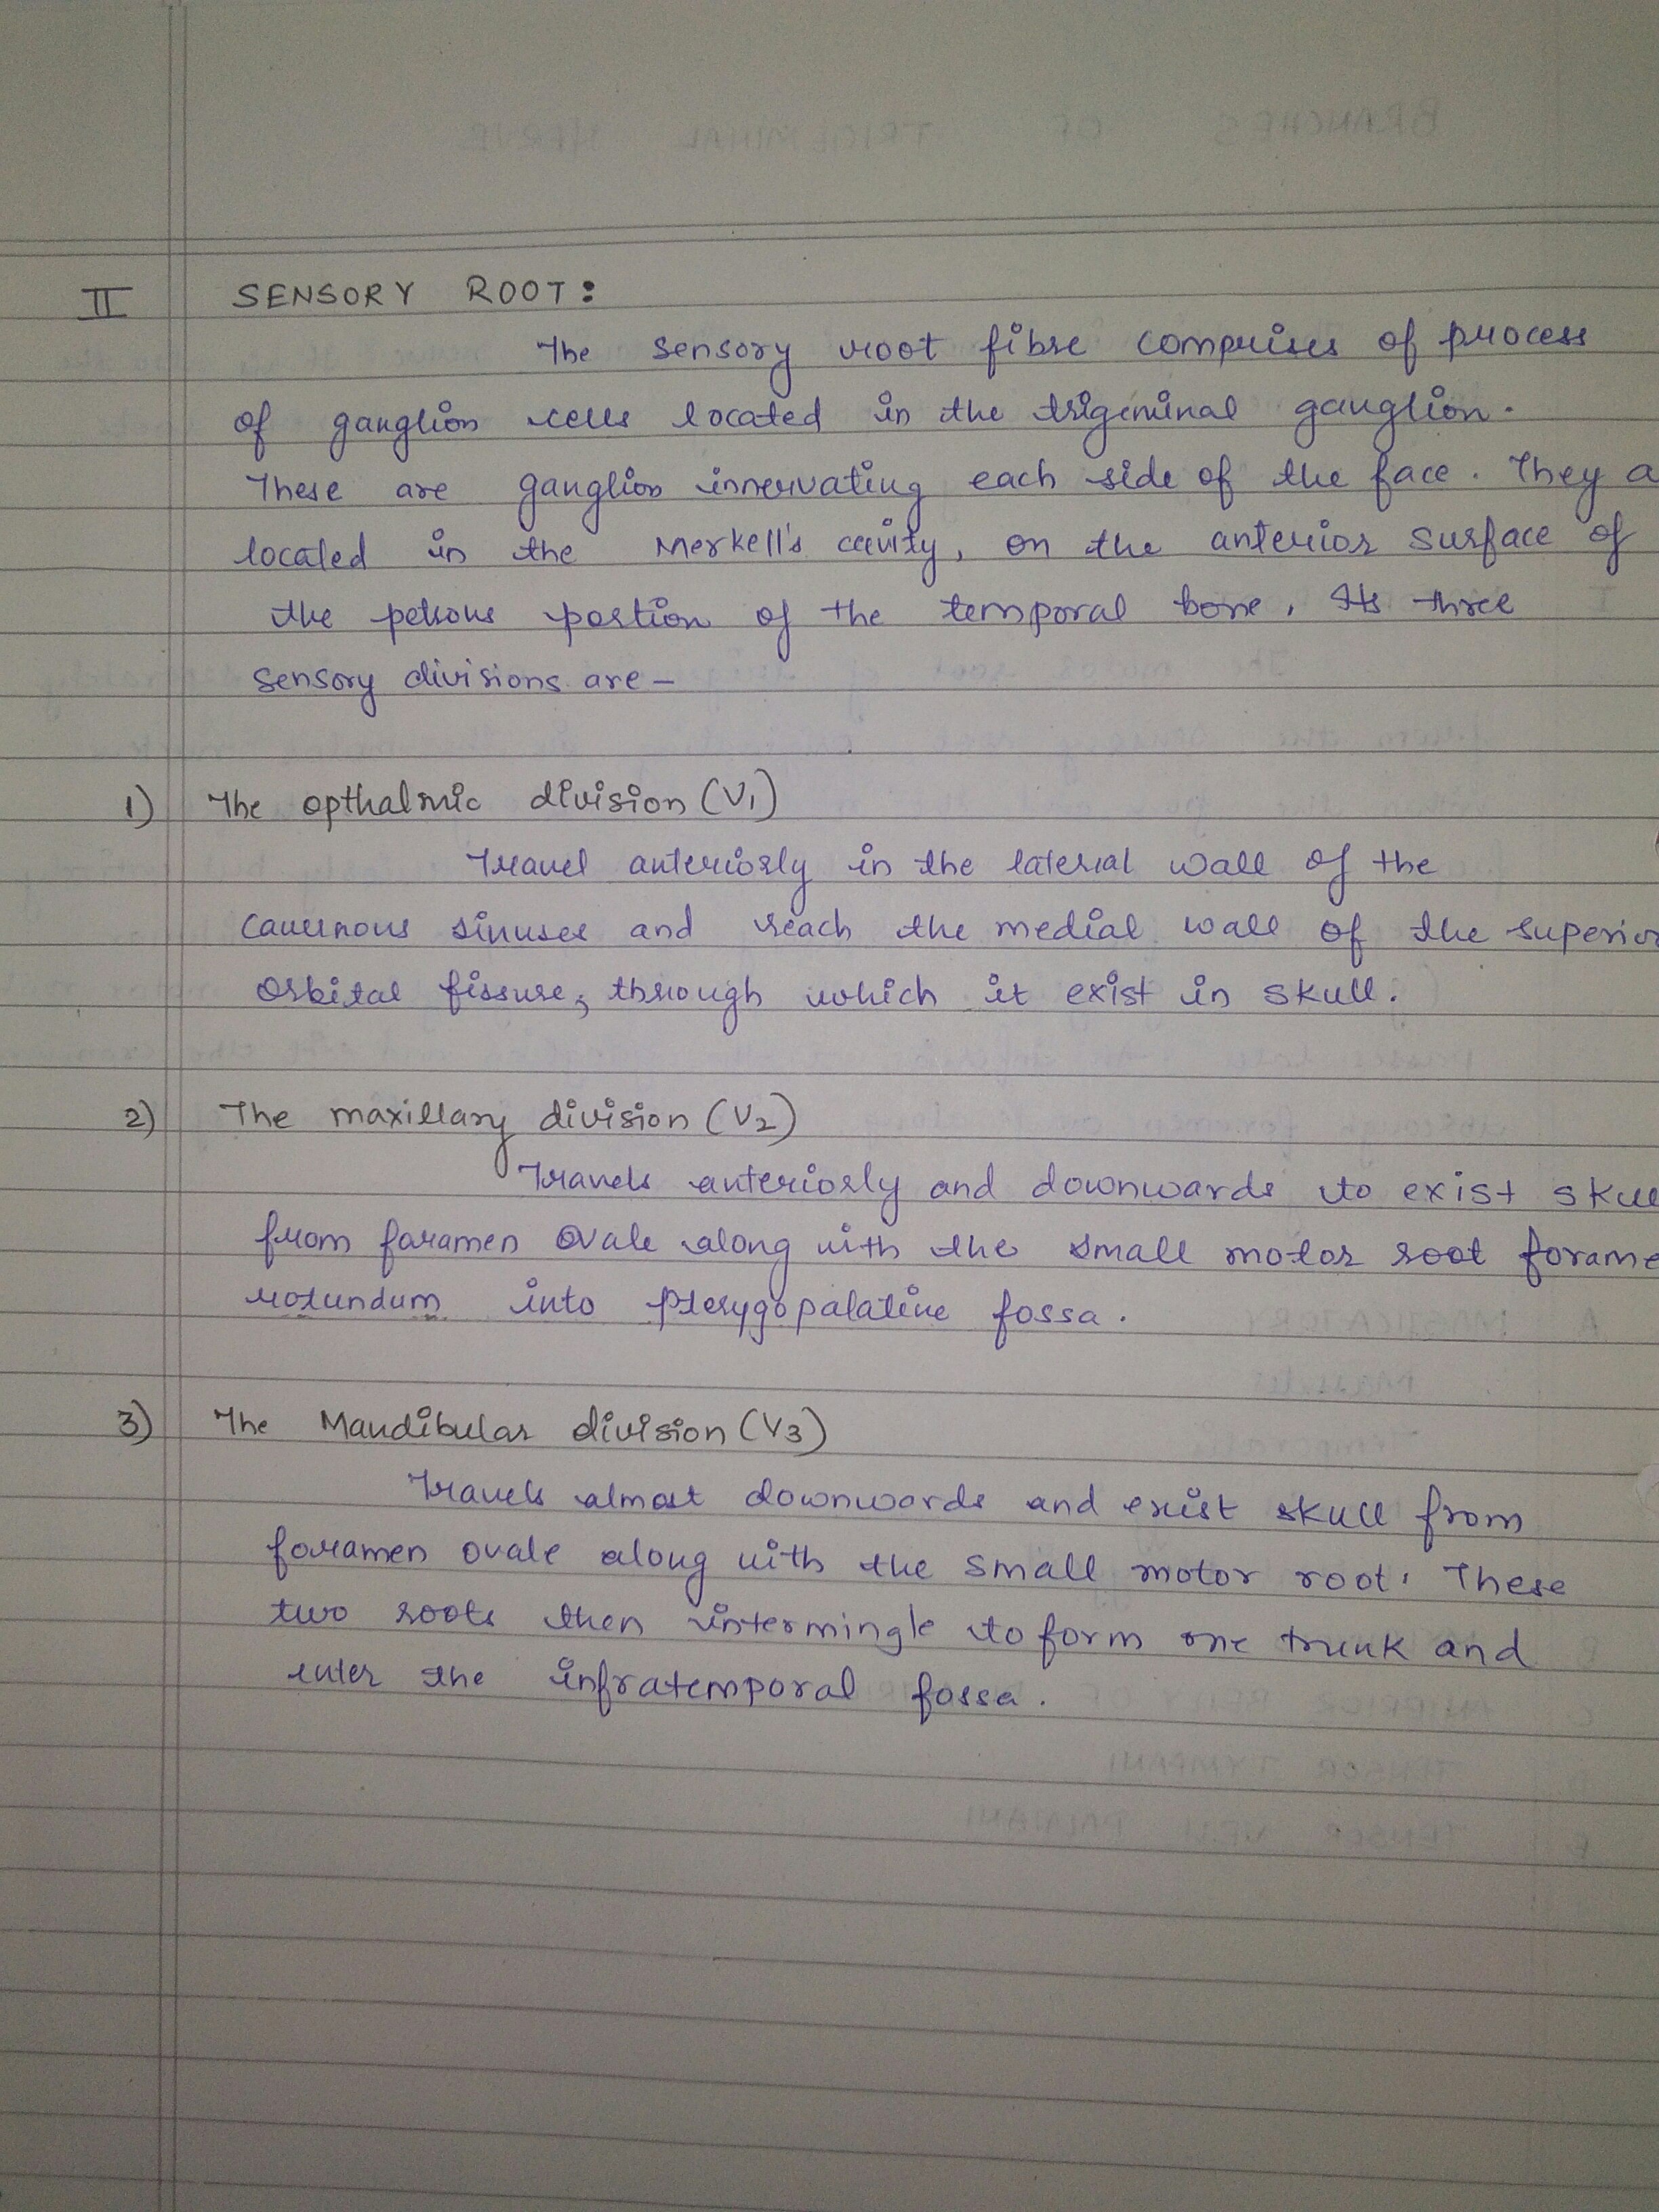 II SENSORY ROOT:
The sensory root fibre comprises of process
of ganglion cells located in the trigeminal ganglion.
These are ganglion innervating each side of the face. They a
located in the Merkell's cavity, on the anterior surface of
the petrous portion of the temporal bone. Its three
sensory divisions are -
1) The opthalmic division (V1)
Travel anteriorly in the laterial wall of the
cavernous sinuses and reach the medial wall of the superior
orbital fissure, through which it exist in skull.
2) The maxillary division (V2)
Travels anteriorly and downwards to exist skull
from foramen ovale along with the small motor root forame
rotundum into pterygopalatine fossa.
3) The Mandibular division (V3)
Travels almost downwards and exist skull from
foramen ovale along with the small motor root. These
two roots then intermingle to form one trunk and
enter the infratemporal fossa.